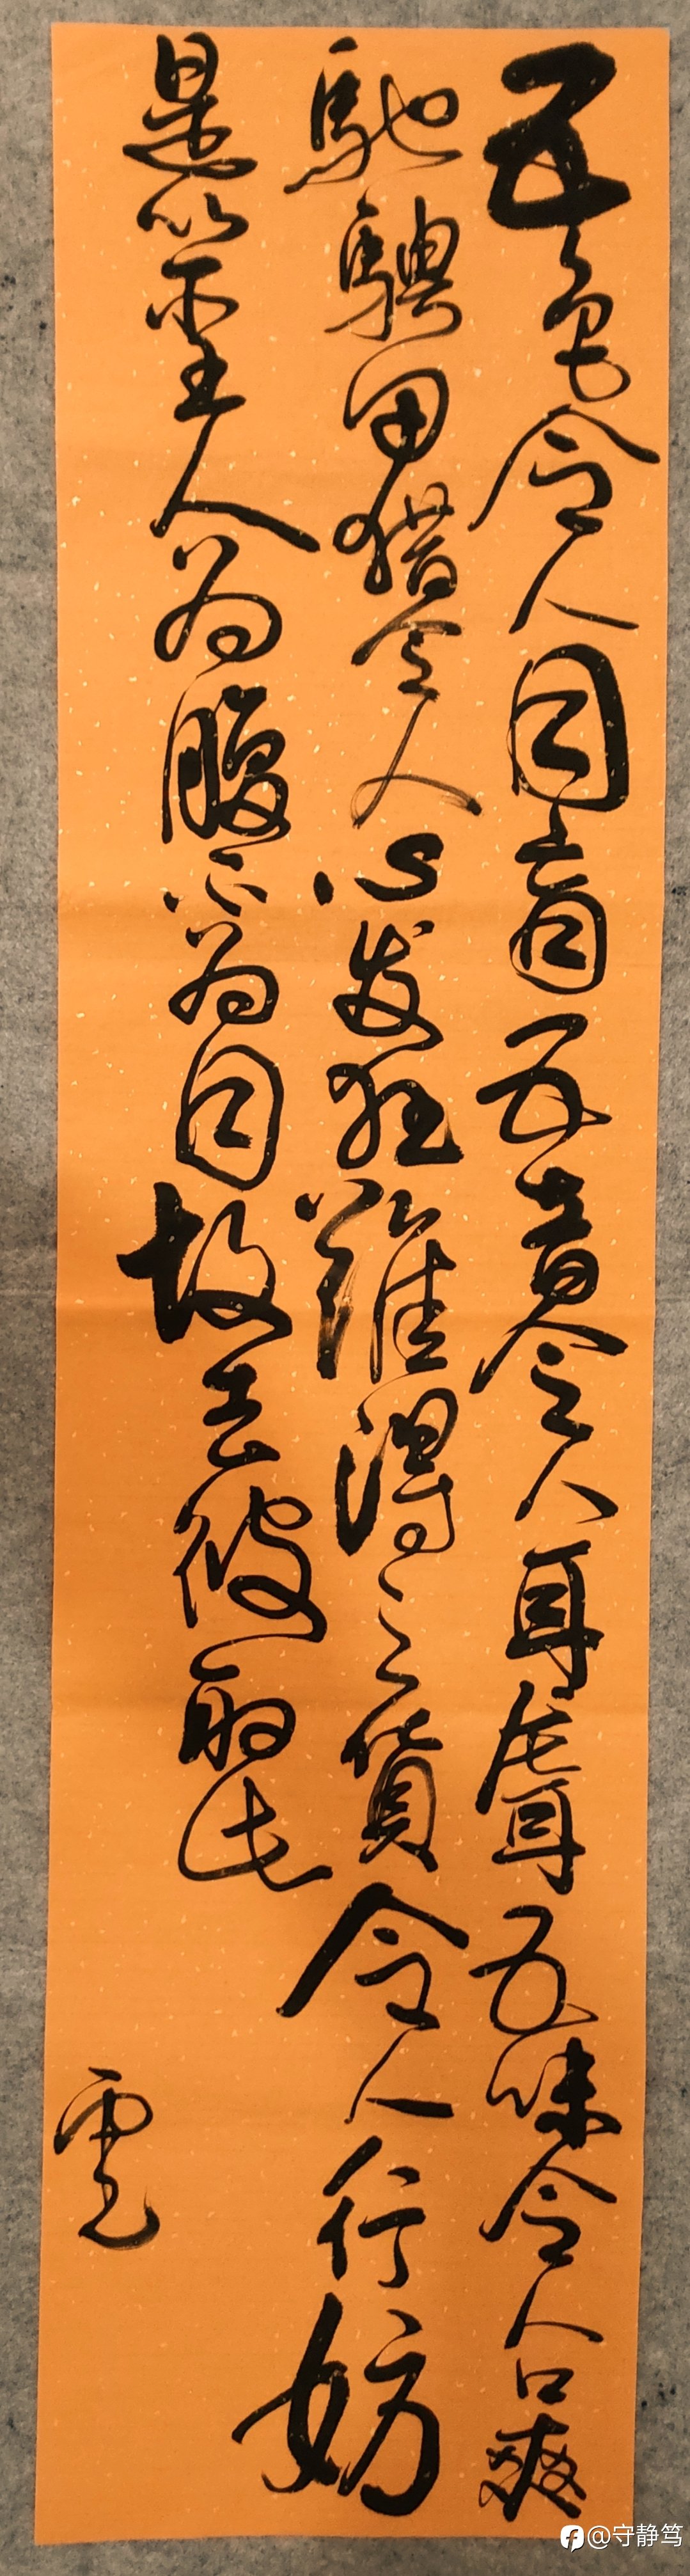 五色令人目盲五音令人耳聋五味令人口爽
驰骋田猎令人心发狂难得之货令人行妨
是以圣人为腹不为目故去彼取此
云
@守静笃